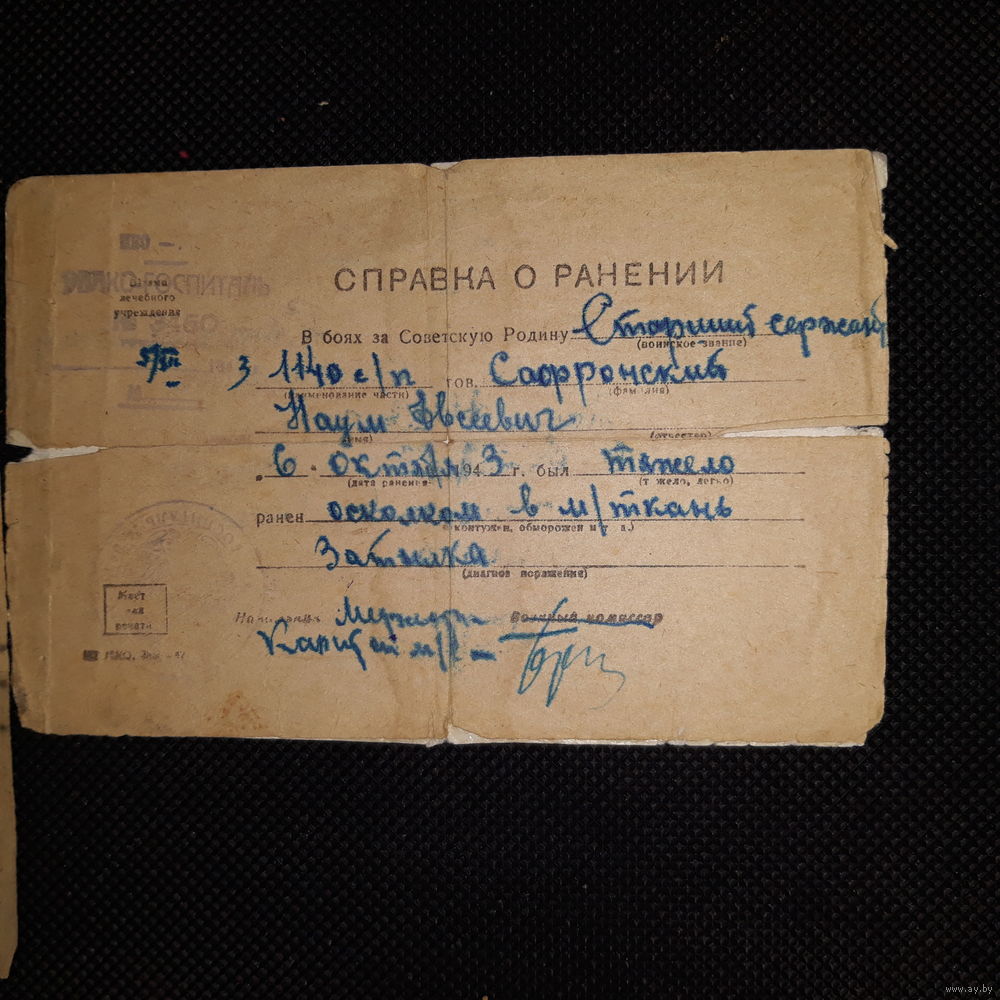 СПРАВКА О РАНЕНИИ
лечебного
учреждения
В боях за Советскую Родину Старший сержант
(воинское звание)
1140 с/п тов. Сафронский
(наименование части) (фамилия)
Наум Авсеевич
(имя) (отчество)
„6“ октября 1943 г. был тяжело
(дата ранения) (тяжело, легко)
ранен осколком в м/ткань
(контужен, обморожен и т. д.)
затылка
(диагноз поражения)
Место
для
печати
Начальник Военный комиссар
Капитан м/с
www.ay.by